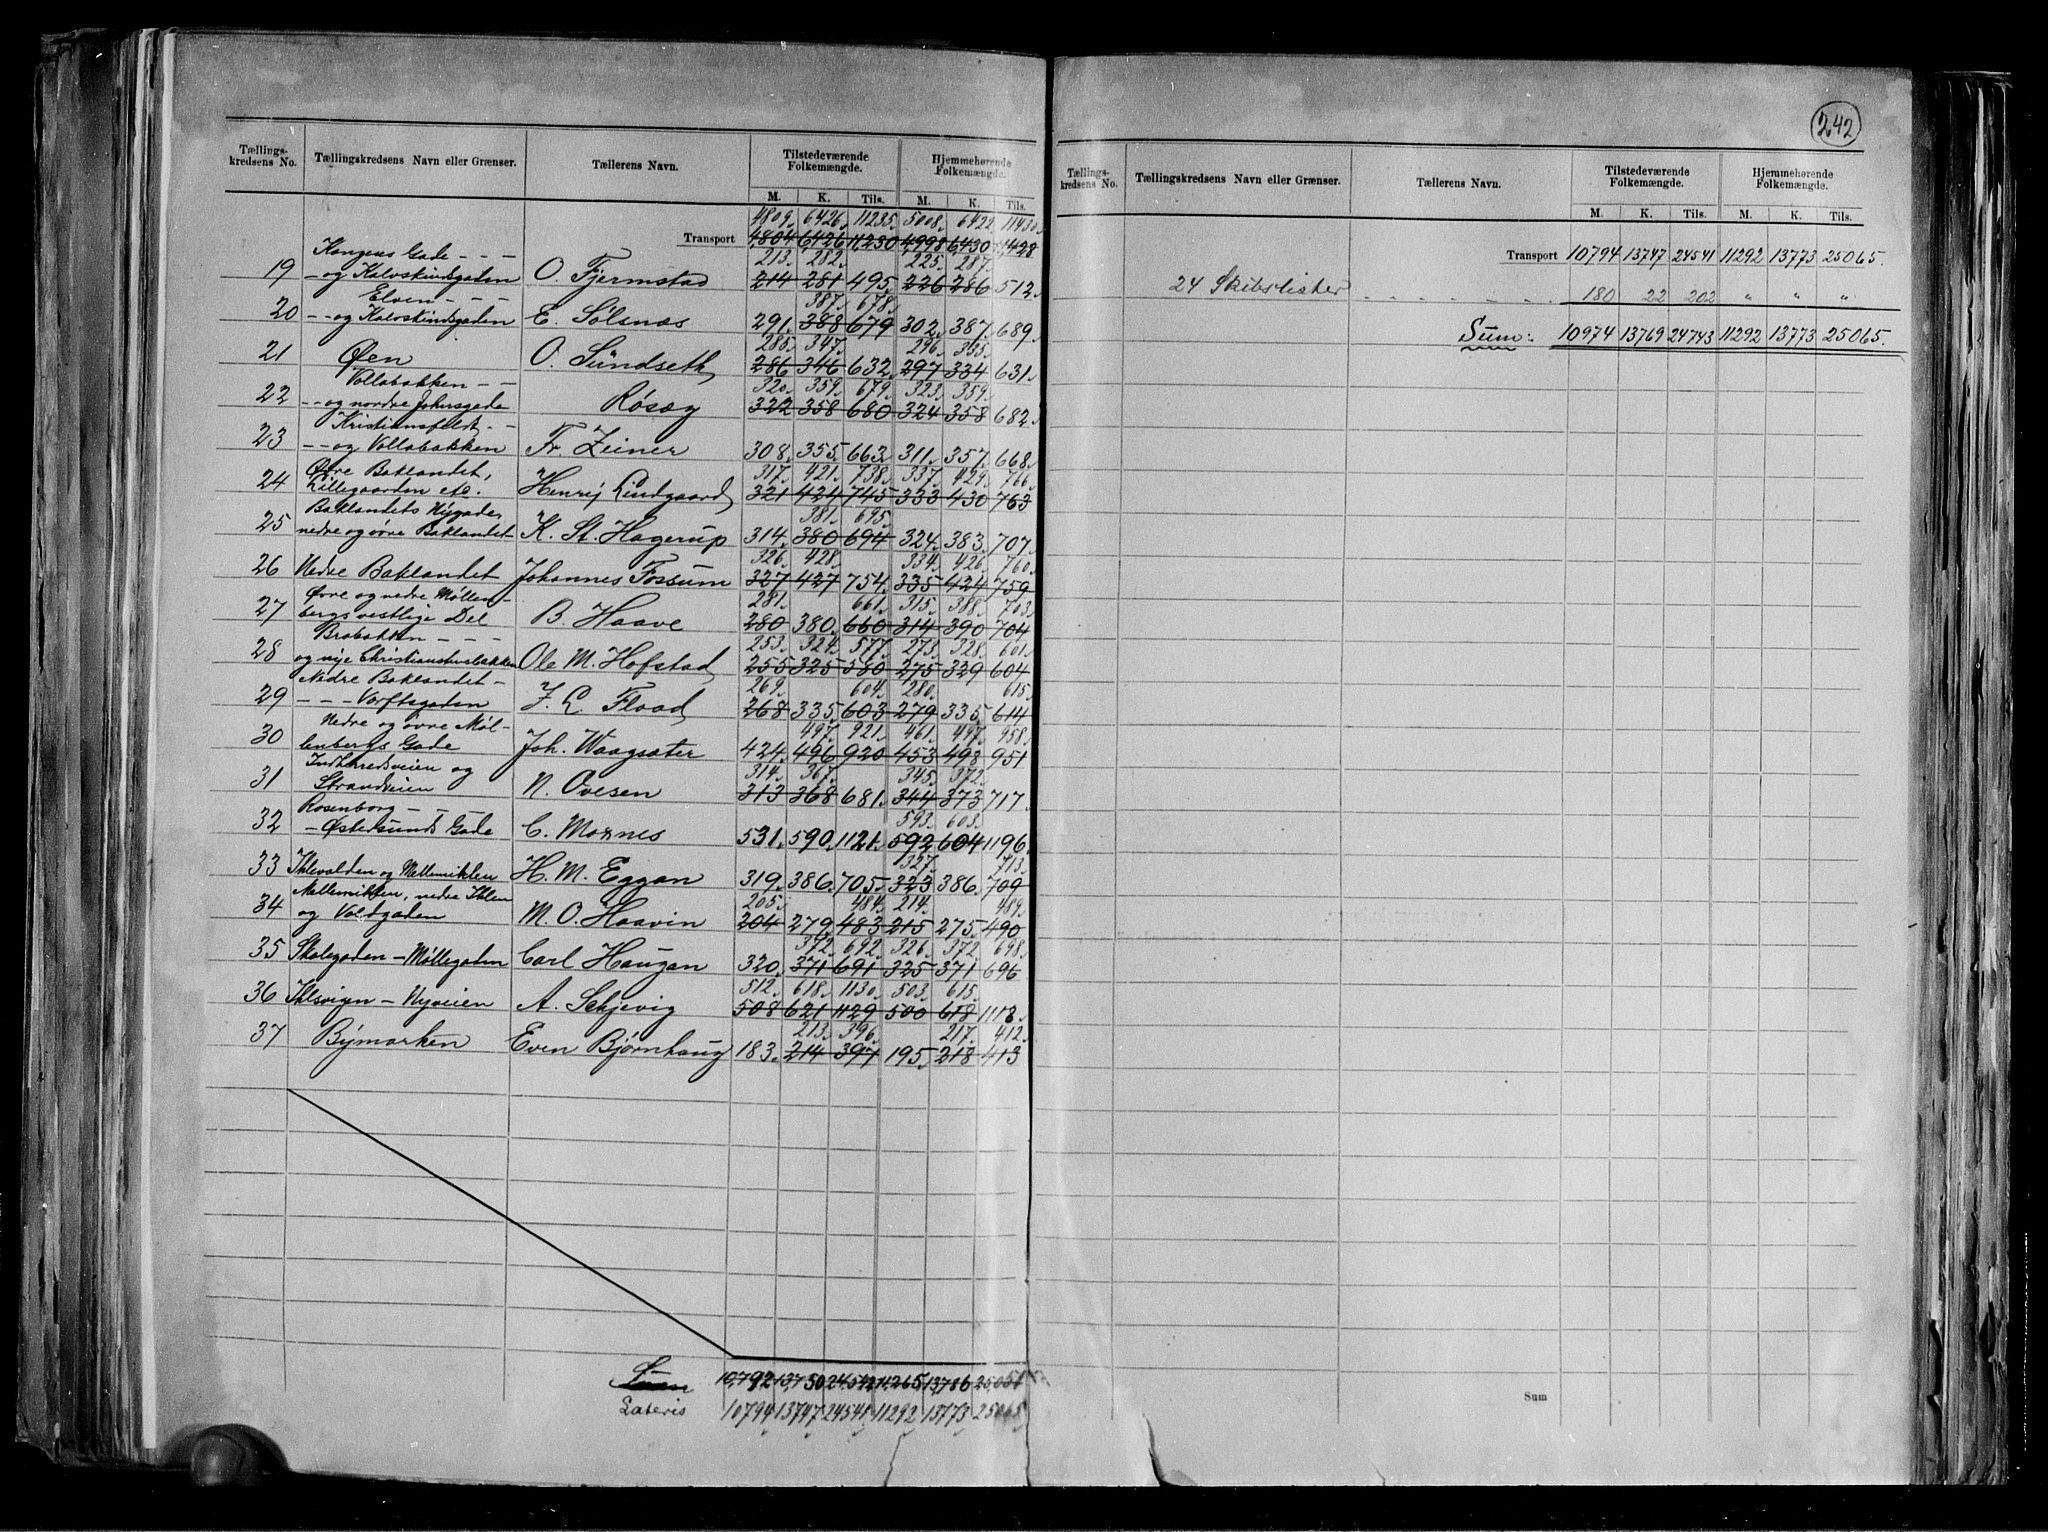 Tællings-
kredsens No.
Tællingskredsens Navn eller Grænser.
Tællerens Navn.
Tilstedeværende
Folkemængde.
Hjemmehørende
Folkemængde.
M. K. Tils. M. K. Tils.
4809. 6426. 11235. 5008. 6422 11430
Transport 4,804 6,426 11,230 4,998 6,430 11,428
Kongens Gade - - - 213. 282. 225. 287.
19 - og Kalvskindsgaden O. Fjermstad 214 281 495. 226 286 512.
Elven - - - 387. 678.
20 - - og Kalvskindsgaden E. Sølsnæs 291. 388 679 302. 387. 689.
285. 347. 296. 335.
21 Øen O. Sundseth 286 346 632. 297 334 631.
Vollabakken - - 320. 359. 679. 323. 359.
22 - - og nordre Johsgade Røsæg 322 358 680 324 358 682.
Kristiansfeldt - -
23 - - og Vollabakken Fr. Zeiner 308. 355. 663. 311. 357. 668.
Øvre Baklandet, 317. 421. 738. 337. 429. 766.
24 Lillegaarden etc. Henrij Lindgaard 321 424 745 333 430 763
Baklandets Nygade, 381. 695.
25 nedre og øvre Baklandet K. St. Hagerup 314. 380 694 324. 383. 707.
326. 428. 334. 426. 760.
26 Nedre Baklandet Johannes Fossum 327 427 754. 335 424 759
Øvre og nedre Møllen- 281. 661. 315. 388. 703
27 bergs vestlige Del B. Haave 280 380. 660 314 390 704
Brobakken - - - 253. 324. 577. 273. 328. 601.
28 og nye Christianstensbakken Ole M. Hofstad 255 325 580 275 329 604
Nedre Baklandet - 269. 604. 280. 615.
29 - - - Verftsgaden J. L. Flood 268 335. 603 279 335. 614
Nedre og øvre Møl- 497. 921. 461. 497. 958.
30 lenbergs Gade Joh. Waagsæter 424. 496 920 453 498 951
Indherredsveien og 314. 367. 345. 372.
31 Strandveien N. Ovesen 313 368 681. 344 373 717.
Rosenborg - - - 593. 603.
32 - Østersunds Gade C. Moxnes 531. 590. 1121. 592 604 1196.
327. 713.
33 Ihlevolden og Mellemiklen H. M. Eggan 319. 386. 705. 323 386. 709
Mellemiklen, nedre Ihlen 205. 484. 214. 489.
34 og Voldgaden M. O. Haavin 204 279. 483 215 275. 490
372. 692. 326. 372. 698.
35 Skolegaden - Møllegaden Carl Haugan 320. 371 691 325 371 696
512. 618. 1130. 503. 615.
36 Ihlsvigen - Nyveien A. Schjevig 508 621 1129 500 618 1118.
213. 396. 217. 412.
37 Bymarken Even Bjørnhaug 183. 214 397 195. 218 413
Sum 10,792 13,750 24,542 11,265 13,786 25,051
Lateris 10794 13747 24541 11292 13773 25065
242
Tællings-
kredsens No.
Tællingskredsens Navn eller Grænser.
Tællerens Navn.
Tilstedeværende
Folkemængde.
Hjemmehørende
Folkemængde.
M. K. Tils. M. K. Tils.
Transport 10794 13747 24541 11292 13773 25065.
24 Skibslister - - - - - - - 180 22 202 " " "
Sum: 10974 13769 24743 11292 13773 25065.
Sum